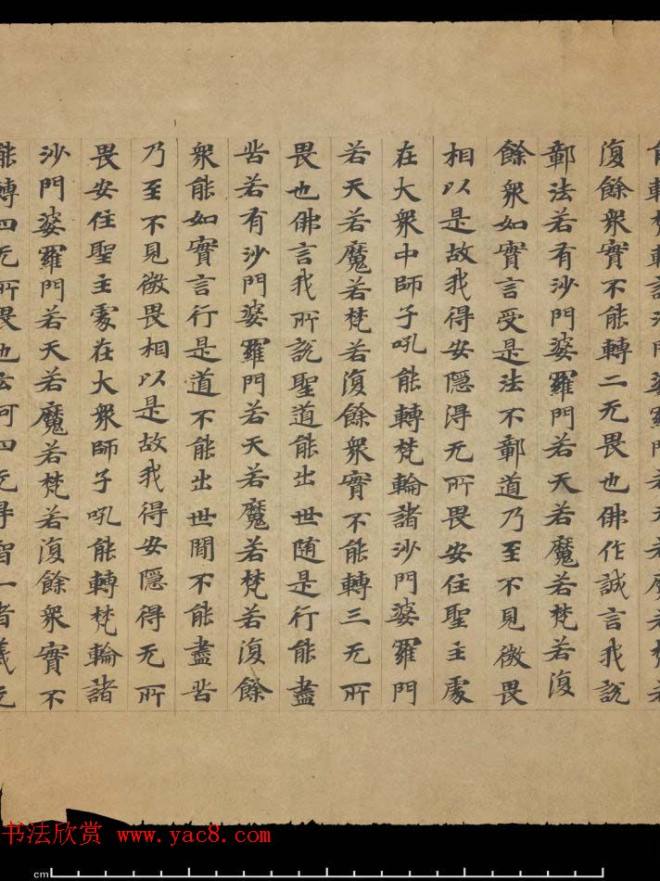 能轉梵輪諸沙門婆羅門若天若魔若梵若
復餘衆實不能轉二无畏也佛作誠言我說
鄣法若有沙門婆羅門若天若魔若梵若復
餘衆如實言受是法不鄣道乃至不見微畏
相以是故我得安隱得无所畏安住聖主處
在大衆中師子吼能轉梵輪諸沙門婆羅門
若天若魔若梵若復餘衆實不能轉三无所
畏也佛言我所說聖道能出世随是行能盡
苦若有沙門婆羅門若天若魔若梵若復餘
衆能如實言行是道不能出世間不能盡苦
乃至不見微畏相以是故我得安隱得无所
畏安住聖主處在大衆師子吼能轉梵輪諸
沙門婆羅門若天若魔若梵若復餘衆實不
能轉四无所畏也云何四无㝵智一者義无
书法欣赏 www.yac8.com
cm